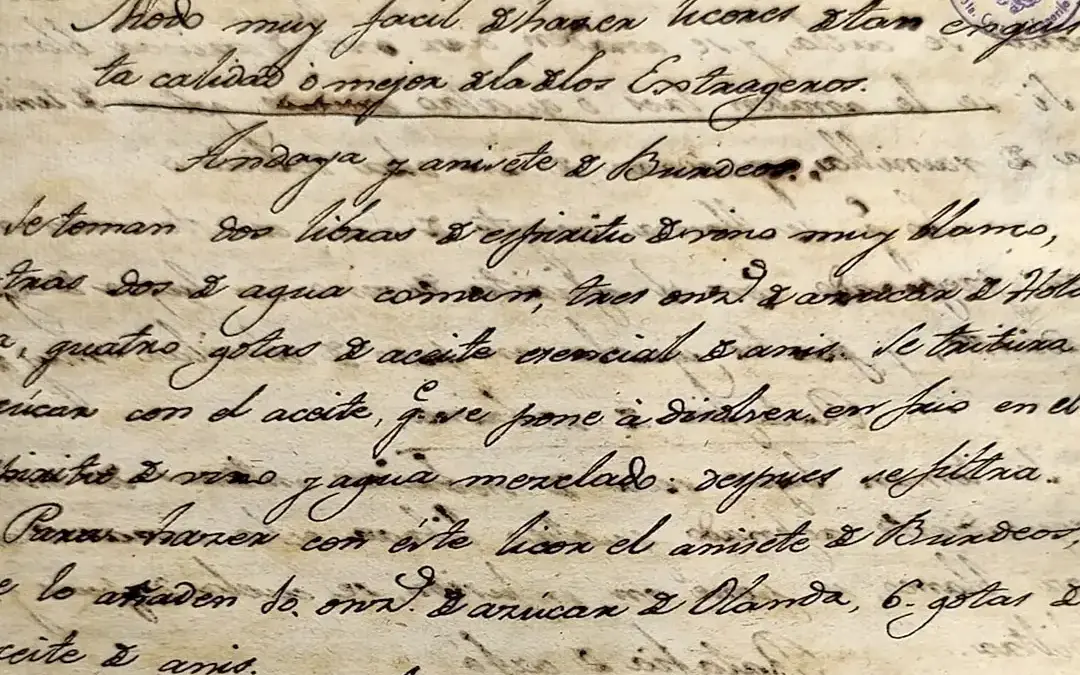 Modo muy facil de hazer licores de tan exqui
ta calidad ò mejor de la de los Extrageros.
Andaya y anisete de Burdeos.
Se toman dos libras de espiritu de vino muy blanco,
tras dos de agua comun, tres onz.s de azucar de Hola
quatro gotas de aceite esencial de anis. Se tritura
zúcar con el aceite, q.e se pone à disolver en frio en el
piritu de vino y agua mezclado: despues se filtra.
Para hazer con éste licor el anisete de Burdeos,
e lo añaden 10. onz.s de azúcar de Olanda, 6. gotas de
ceite de anis.